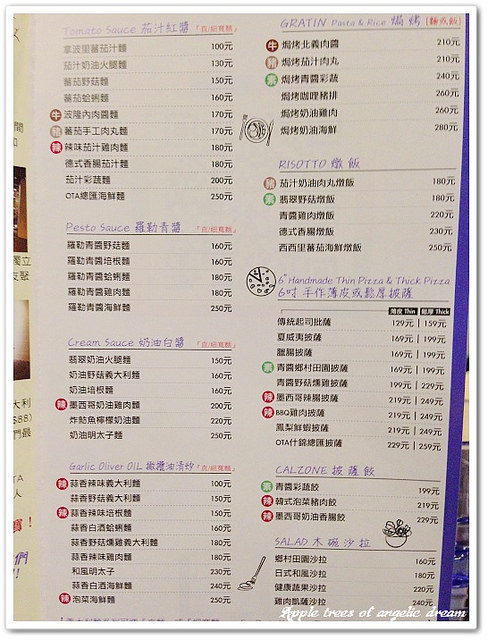 Tomato Sauce 茄汁紅醬 『直/紐寬麵』
拿波里蕃茄汁麵 100元
茄汁奶油火腿麵 130元
蕃茄野菇麵 150元
蕃茄蛤蜊麵 160元
牛 波隆內肉醬麵 170元
豬 蕃茄手工肉丸麵 170元
辣 辣味茄汁雞肉麵 180元
德式香腸茄汁麵 180元
茄汁彩蔬麵 200元
OTA總匯海鮮麵 250元
Pesto Sauce 羅勒青醬 『直/紐寬麵』
羅勒青醬野菇麵 160元
羅勒青醬培根麵 160元
羅勒青醬蛤蜊麵 180元
羅勒青醬雞肉麵 180元
羅勒青醬海鮮麵 250元
Cream Sauce 奶油白醬 『直/紐寬麵』
翡翠奶油火腿麵 150元
奶油野菇義大利麵 160元
奶油培根麵 160元
辣 墨西哥奶油雞肉麵 200元
炸魚檸檬奶油麵 220元
奶油明太子麵 250元
Garlic Oliver OIL 橄欖油清炒 『直/紐寬麵』
辣 蒜香辣味義大利麵 100元
蒜香野菇義大利麵 150元
辣 蒜香辣味培根麵 150元
蒜香白酒蛤蜊麵 160元
蒜香野菇燻雞義大利麵 180元
蒜香辣味雞肉麵 180元
和風明太子 230元
蒜香白酒海鮮麵 240元
辣 泡菜海鮮麵 250元
GRATIN Pasta & Rice 焗烤 [麵或飯]
牛 焗烤北義肉醬 210元
豬 焗烤茄汁肉丸 210元
素 焗烤青醬彩蔬 240元
焗烤咖哩豬排 260元
焗烤奶油雞肉 260元
焗烤奶油海鮮 280元
RISOTTO 燉飯
豬 茄汁奶油肉丸燉飯 180元
素 翡翠野菇燉飯 180元
青醬雞肉燉飯 220元
德式香腸燉飯 230元
西西里蕃茄海鮮燉飯 250元
6" Handmade Thin Pizza & Thick Pizza
6吋 手作薄皮或鬆厚披薩
薄皮 Thin 鬆厚 Thick
傳統起司批薩 129元 | 159元
夏威夷披薩 169元 | 199元
臘腸披薩 169元 | 199元
素 青醬鄉村田園披薩 169元 | 199元
青醬野菇燻雞披薩 199元 | 229元
辣 墨西哥辣腸披薩 219元 | 249元
辣 BBQ雞肉披薩 219元 | 249元
鳳梨鮮蝦披薩 219元 | 249元
OTA什錦總匯披薩 229元 | 259元
CALZONE 披薩餃
素 青醬彩蔬餃 199元
辣 韓式泡菜豬肉餃 219元
辣 墨西哥奶油香腸餃 229元
SALAD 木碗沙拉
鄉村田園沙拉 160元
日式和風沙拉 180元
健康蔬果沙拉 220元
雞肉凱薩沙拉 240元
Apple trees of angelic dream